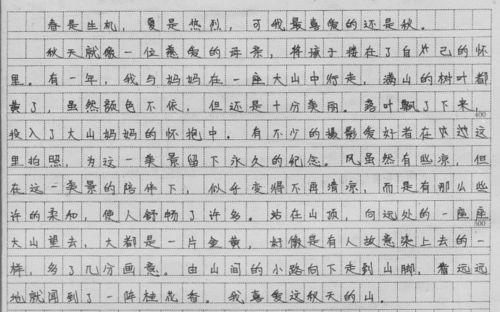 春是生机，夏是热烈，可我最喜爱的还是秋。
秋天就像一位慈爱的母亲，将孩子搂在了自己的怀
里。有一年，我与妈妈在一座大山中行走，满山的树叶都
黄了，虽然颜色不依，但还是十分美丽。落叶飘了下来，
400
投入了大山妈妈的怀抱中。有不少的摄影爱好者在这
里拍照，为这一美景留下永久的纪念。风虽然有些凉，但
在这一美景的陪伴下，似乎变得不再清凉，而是有那么些
许的柔和，使人舒畅了许多。站在山顶，向远处的一座座
500
大山望去，大都是一片金黄，好像是有人故意染上去的一
样，多了几分画意。由山间的小路向下走到山脚，着远远
地就闻到了一阵桂花香。我喜爱这秋天的山。